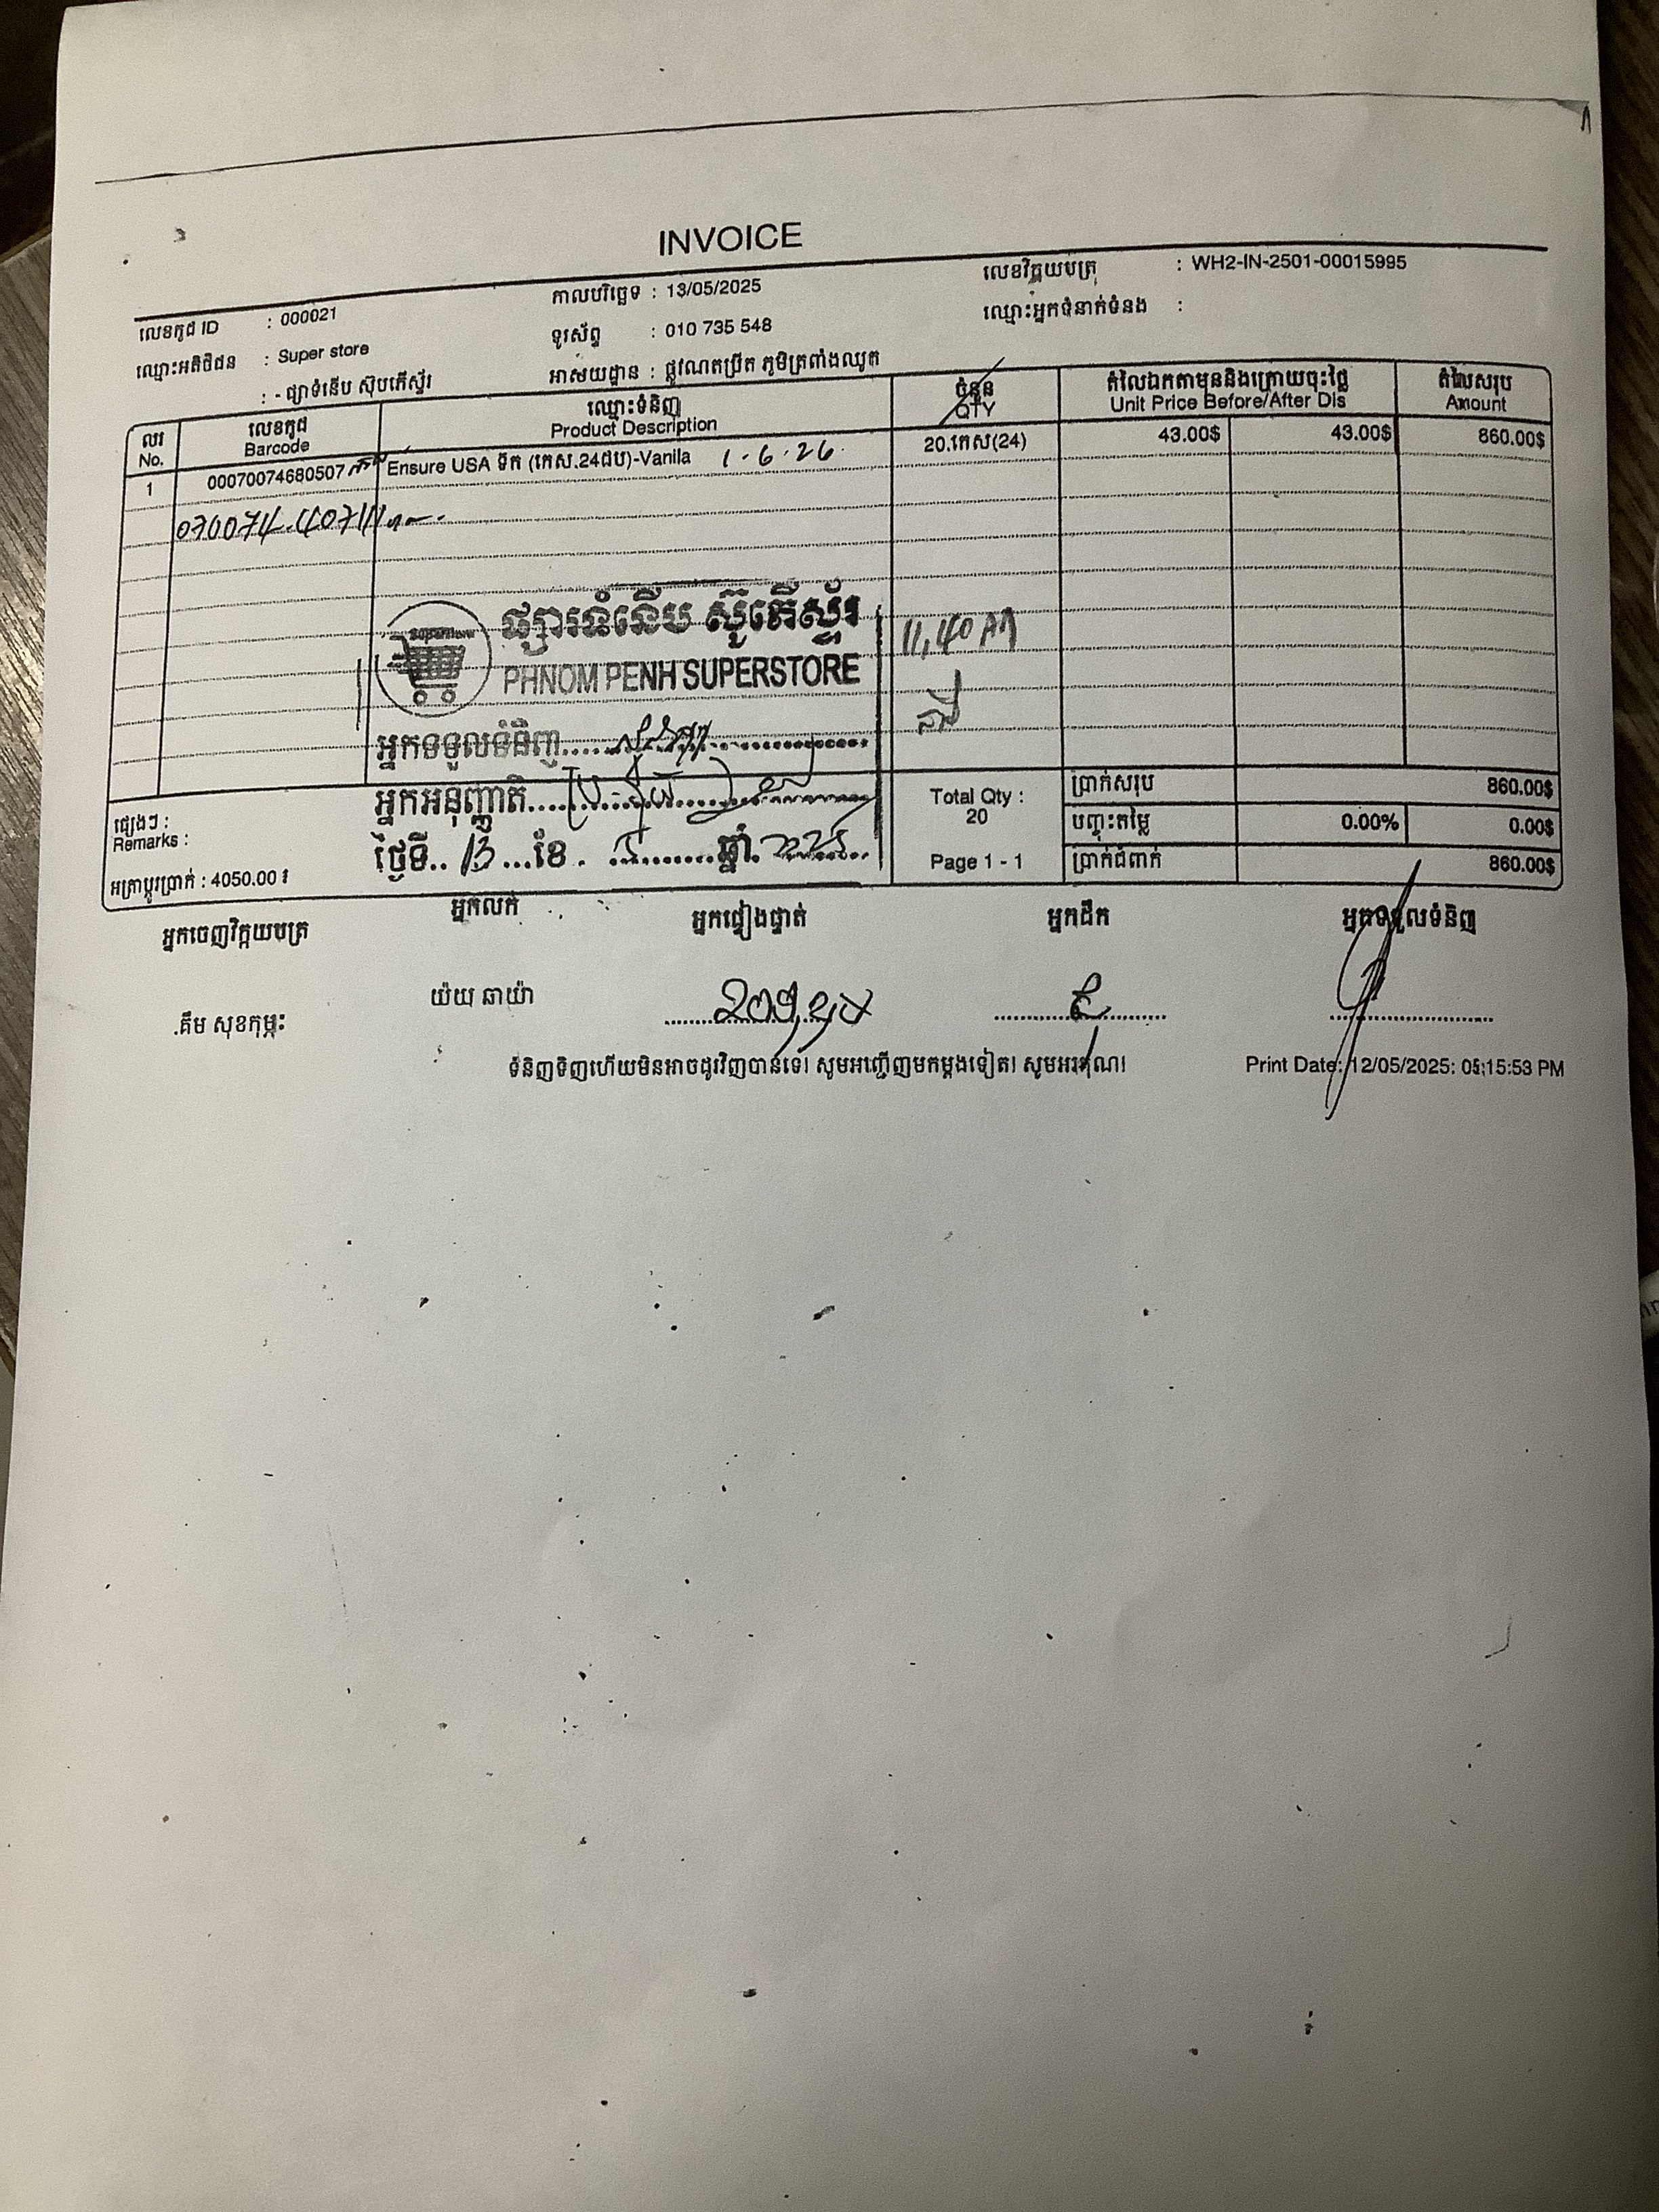 INVOICE
លេខកូដ ID : 000021
កាលបរិច្ឆេទ : 13/05/2025
លេខវិក្កយបត្រ : WH2-IN-2501-00015995
ឈ្មោះអតិថិជន : Super store
ទូរស័ព្ទ : 010 735 548
ឈ្មោះអ្នកទំនាក់ទំនង :
: - ផ្សាទំនើប ស៊ុបភើស្ទ័រ
អាសយដ្ឋាន : ផ្លូវណតប្រ៊ីត ភូមិត្រពាំងឈូក
លរ No.
លេខកូដ Barcode
ឈ្មោះទំនិញ Product Description
ចំនួន QTY
តំលៃឯកតាមុននិងក្រោយចុះថ្លៃ Unit Price Before/After Dis
តំលៃសរុប Amount
1 00070074680507 Ensure USA ទឹក (កេស.24ដប)-Vanila 1-6-26 20.កេស(24) 43.00$ 43.00$ 860.00$
ផ្សារទំនើប ស៊ូភើស្ទ័រ
PHNOM PENH SUPERSTORE
11,40 AM
អ្នកទទួលទំនិញ
អ្នកអនុញ្ញាតិ
ថ្ងៃទី.. 13 ...ខែ . 5 ........ឆ្នាំ. 2025
ផ្សេងៗ :
Remarks :
អត្រាប្តូរប្រាក់ : 4050.00 ៛
Total Qty :
20
Page 1 - 1
ប្រាក់សរុប 860.00$
បញ្ចុះតម្លៃ 0.00% 0.00$
ប្រាក់ជំពាក់ 860.00$
អ្នកចេញវិក្កយបត្រ អ្នកលក់ អ្នកផ្ទៀងផ្ទាត់ អ្នកដឹក អ្នកទទួលទំនិញ
គឹម សុខកុម្ភៈ យ៉យ ឆាយ៉ា
ទំនិញទិញហើយមិនអាចដូរវិញបានទេ។ សូមអញ្ជើញមកម្តងទៀត។ សូមអរគុណ។
Print Date: 12/05/2025: 05:15:53 PM